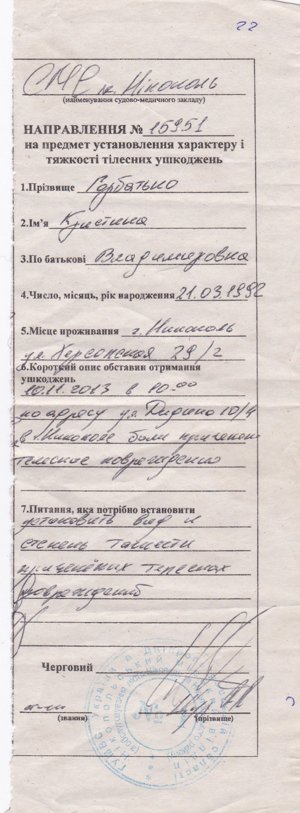 22
СМЕ м. Нікополь
(найменування судово-медичного закладу)
НАПРАВЛЕННЯ № 15951
на предмет установлення характеру і
тяжкості тілесних ушкоджень
1.Прізвище Горбатько
2.Ім'я Кристина
3.По батькові Владимировна
4.Число, місяць, рік народження 21.03.1992
5.Місце проживання г. Никополь
ул. Херсонская 29/2
6.Короткий опис обставин отримання
ушкоджень
10.11.2013 в 10.00
по адресу ул. 10/4
в г. Никополе были причинены
телесные повреждения
7.Питання, яка потрібно встановити
установить вид и
степень тяжести
причинённых телесных
повреждений
Черговий
(звання) (прізвище)